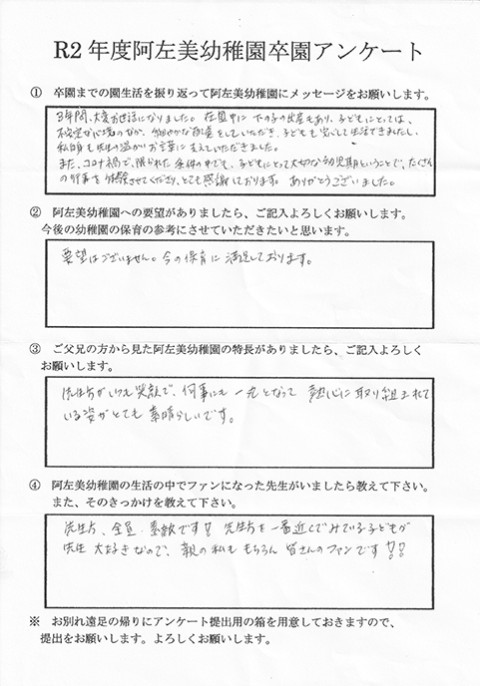 R2年度阿左美幼稚園卒園アンケート
① 卒園までの園生活を振り返って阿左美幼稚園にメッセージをお願いします。
3年間、大変お世話になりました。在園中に下の子の出産もあり、子どもにとっては、
不安定な心境のなか、細やかな配慮をしていただき、子どもも安心して生活できましたし、
私自身も先生の温かいお言葉に支えていただきました。
また、コロナ禍で、限られた条件の中でも、子どもにとって大切な幼児期ということで、たくさん
の行事を体験させてくださり、とても感謝しております。ありがとうございました。
② 阿左美幼稚園への要望がありましたら、ご記入よろしくお願いします。
今後の幼稚園の保育の参考にさせていただきたいと思います。
要望はございません。今の保育に満足しております。
③ ご父兄の方から見た阿左美幼稚園の特長がありましたら、ご記入よろしく
お願いします。
先生方がいつも笑顔で、何事にも一丸となって熱心に取り組まれて
いる姿がとても素晴らしいです。
④ 阿左美幼稚園の生活の中でファンになった先生がいましたら教えて下さい。
また、そのきっかけを教えて下さい。
先生方、全員素敵です!! 先生方を一番近くでみている子どもが
先生大好きなので、親の私ももちろん皆さんのファンです!!
※ お別れ遠足の帰りにアンケート提出用の箱を用意しておきますので、
提出をお願いします。よろしくお願いします。